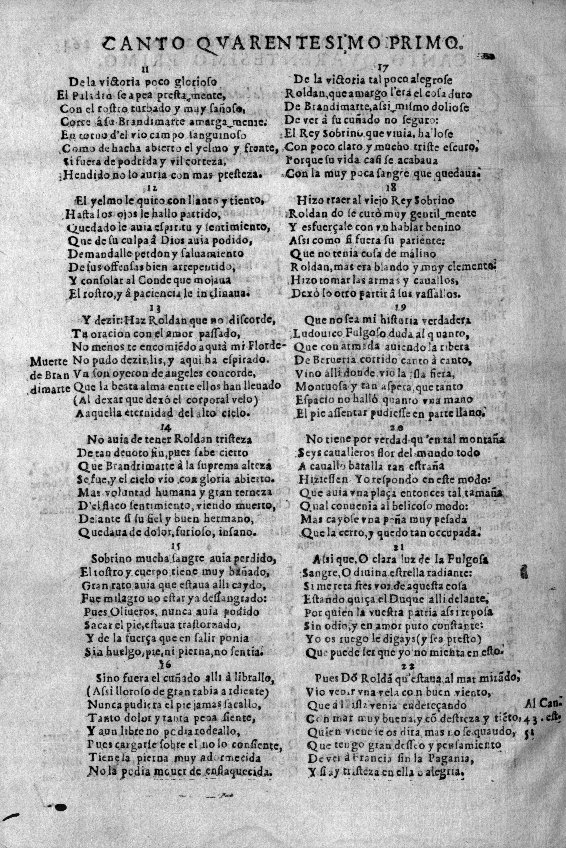 CANTO QVARENTESIMO PRIMO.
11
De la victoria poco glorioso
El Paladin se apea prestamente,
Con el rostro turbado y muy sañoso,
Corre à su Brandimarte amargamente.
En torno d'el vio campo sanguinoso
Como de hacha abierto el yelmo y frente,
Si fuera de podrida y vil corteza,
Hendido no lo auria con mas presteza.
12
El yelmo le quito con llanto y tiento,
Hasta los ojos le hallo partido,
Quedado le auia espiritu y sentimiento,
Que de su culpa â Dios auia podido,
Demandalle perdon y saluamiento
De sus offensas bien arrepentido,
Y consolar al Conde que mojaua
El rostro, y â paciencia le inclinaua.
13
Y dezir: Haz Roldan que no discorde,
Tu oracion con el amor passado,
No menos te encomiẽdo aqui mi Florde-
Muerte
de Bran
dimarte
No pudo dezir, lis, y aqui ha espirado.
Vn son oyeron de angeles concorde,
Que la beata alma entre ellos han lleuado
(Al dexar que dexó el corporal velo)
A aquella eternidad del alto cielo.
14
No auia de tener Roldan tristeza
De tan deuoto fin, pues sabe cierto
Que Brandimarte â la suprema alteza
Se fue, y el cielo vio con gloria abierto.
Mas voluntad humana y gran terneza
D'el flaco sentimiento, viendo muerto,
Delante si su fiel y buen hermano,
Quedaua de dolor, furioso, insano.
15
Sobrino mucha sangre auia perdido,
El rostro y cuerpo tiene muy bañado,
Gran rato auia que estaua alli caydo,
Fue milagro no estar ya dessangrado:
Pues Oliueros, nunca auia podido
Sacar el pie, estaua trastornado,
Y de la fuerça que en salir ponia
Sin huelgo, pie, ni pierna, no sentia.
16
Sino fuera el cuñado alli â librallo,
(Assi lloroso de gran rabia ardiente)
Nunca pudiera el pie jamas sacallo,
Tanto dolor y tanta pena siente,
Y aun libre no podia rodeallo,
Pues cargarse sobre el no lo consiente,
Tiene la pierna muy adormecida
No la podia mouer de enflaquecida.
17
De la victoria tal poco alegrose
Roldan, que amargo l'era el cosa duro
De Brandimarte, assi mismo doliose
De ver â su cuñado no seguro:
El Rey Sobrino que viuia, halose
Con poco claro y mucho triste escuro,
Porque su vida casi se acabaua
Con la muy poca sangre que quedaua.
18
Hizo traer al viejo Rey Sobrino
Roldan do se curó muy gentilmente
Y esfuerçale con vn hablar benino
Assi como si fuera su pariente:
Que no tenia cosa de malino
Roldan, mas era blando y muy clemente.
Hizo tomar las armas y cauallos,
Dexó lo otro partir â sus vassallos.
19
Que no sea mi historia verdadera
Ludouico Fulgoso duda, al quanto,
Que con armada auiendo la ribera
De Berueria corrido canto â canto,
Vino alli donde vio la isla fiera,
Montuosa y tan aspera, que tanto
Espacio no halló quanto vna mano
El pie assentar pudiesse en parte llano.
20
No tiene por verdad qu'en tal montaña
Seys caualleros flor del mundo todo
A cauallo batalla tan estraña
Hiziessen Yo respondo en este modo:
Que auia vna plaça entonces tal, tamaña
Qual conuenia al belicoso modo:
Mas cayose vna peña muy pesada
Que la cerro, y quedo tan occupada.
21
Assi que, O clara luz de la Fulgosa
Sangre, O diuina estrella radiante:
Si me reta stes vos de aquesta cosa
Estando quiça el Duque alli delante,
Por quien la vuestra patria assi reposa
Sin odio, y en amor puto constante:
Yo os ruego le digays (y sea presto)
Que puede ser que yo no mienta en esto.
22
Pues Dõ Roldã qu'estaua, al mar mirãdo,
Vio venir vna vela con buen viento,
Que â l'isla venia endereçando
Con mar muy buena, y cõ destreza y tiẽto,
Al Can.
43. est.
51
Quien viene ie os dira mas no se quando,
Que tengo gran desseo y pensamiento
De ver â Francia sin la Pagania,
Y si ay tristeza en ella o alegria.